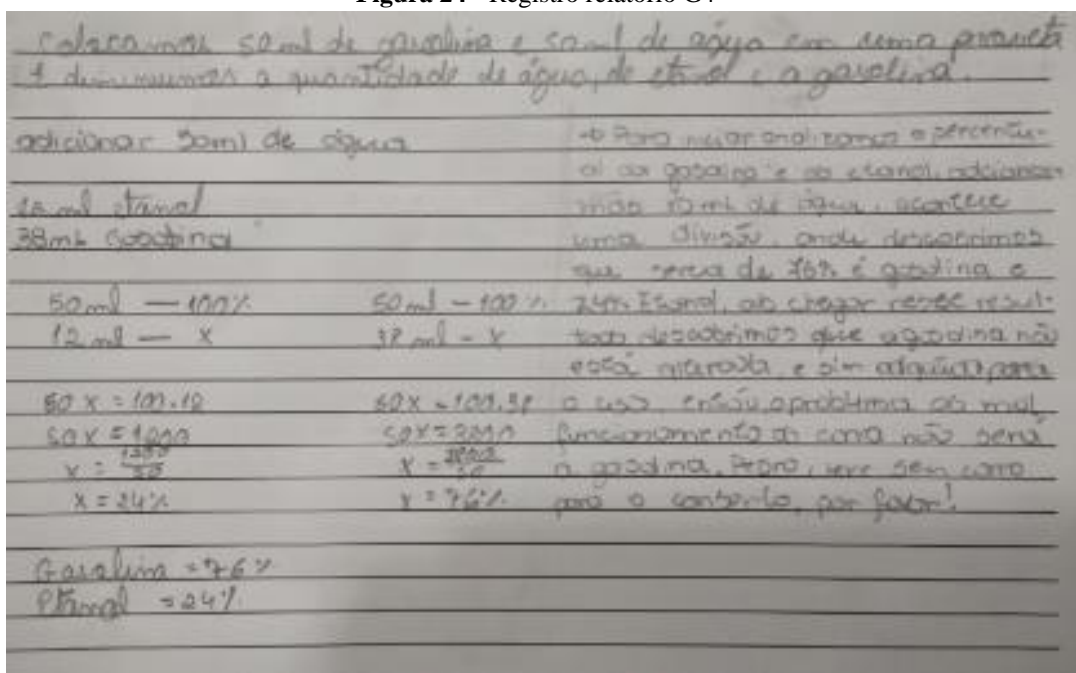 Figura 24 - Registro relatório G4
Colocamos 50 ml de gasolina e 50 ml de água em uma proveta
a quantidade de água, de etanol e a gasolina.
adicionar 50ml de água
12 ml etanol
38mL Gasolina
50ml — 100%
12 ml — x
50 x = 100.12
50 x = 1200
x = 1200/50
x = 24%
50ml - 100%
38 ml - x
50x = 100.38
50x = 3800
x = 3800/50
x = 76%
Gasolina = 76%
Etanol = 24%
→ Para analizamos o percentu-
al da gasolina e do etanol, adicionan-
50 mL de água, acontece
uma divisão, onde descobrimos
que cerca de 76% é gasolina e
24% Etanol, ao chegar nesse resul-
tado descobrimos que a gasolina não
está alterada, e sim para
o uso, então o problema do mal
funcionamento do carro não será
a gasolina. leve seu carro
para o conserto, por favor!